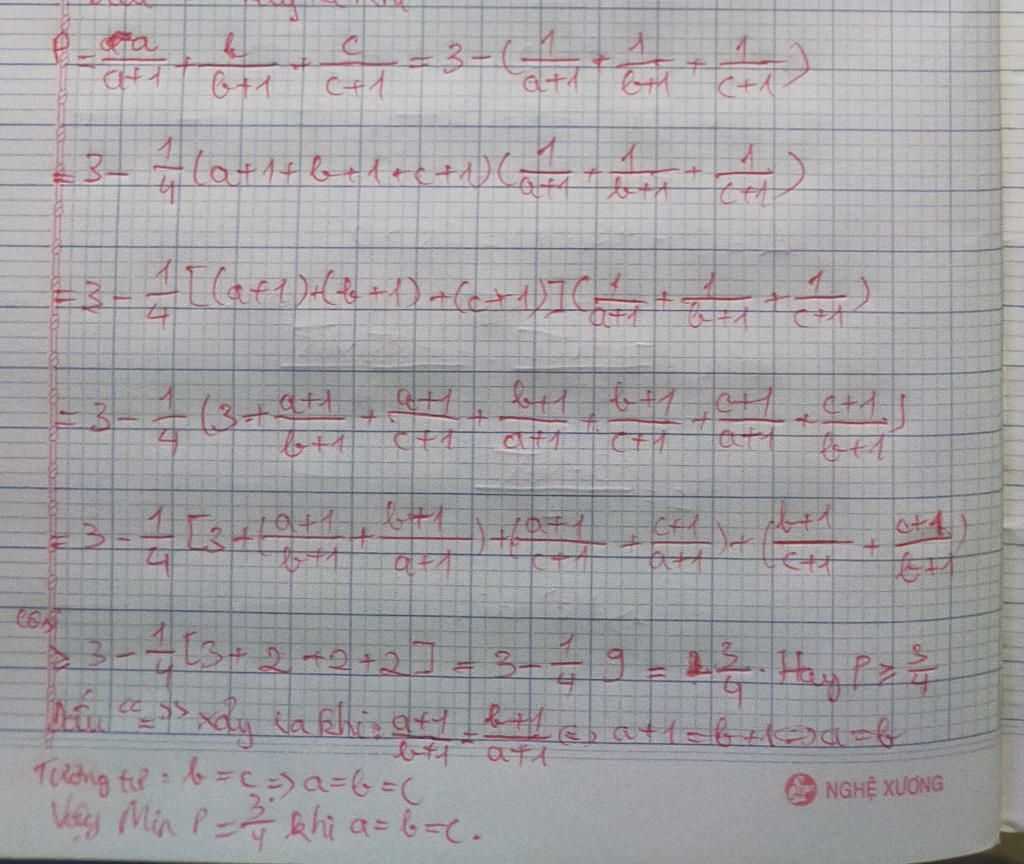 P = a/(a+1) + b/(b+1) + c/(c+1) = 3 - (1/(a+1) + 1/(b+1) + 1/(c+1))
= 3 - 1/4 (a+1+b+1+c+1)(1/(a+1) + 1/(b+1) + 1/(c+1))
= 3 - 1/4 [(a+1)+(b+1)+(c+1)](1/(a+1) + 1/(b+1) + 1/(c+1))
= 3 - 1/4 (3 + (a+1)/(b+1) + (a+1)/(c+1) + (b+1)/(a+1) + (b+1)/(c+1) + (c+1)/(a+1) + (c+1)/(b+1)]
= 3 - 1/4 [3 + ((a+1)/(b+1) + (b+1)/(a+1)) + ((a+1)/(c+1) + (c+1)/(a+1)) + ((b+1)/(c+1) + (c+1)/(b+1))
≥ 3 - 1/4 [3 + 2 + 2 + 2] = 3 - 1/4 9 = 3/4. Hay P ≥ 3/4
Dấu "=" xảy ra khi: (a+1)/(b+1) = (b+1)/(a+1) <=> a+1 = b+1 => a = b
Tương tự: b = c => a = b = c
Vậy Min P = 3/4 khi a = b = c.
NGHỆ XƯƠNG